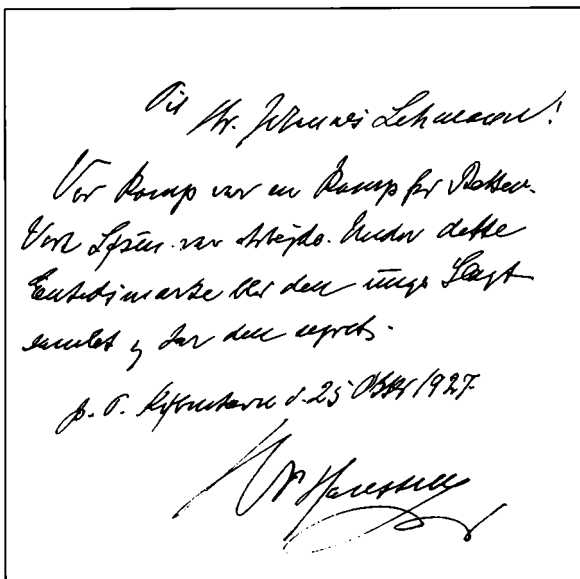 Til
Hr. Johannes Lehmann!
Vor Kamp var en Kamp for Retten.
Vort Løsen var Arbejde. Under dette
den unge Slægt
samlet og har den sejret.
p. t. København d. 25 Oktbr 1927.
H P Hanssen